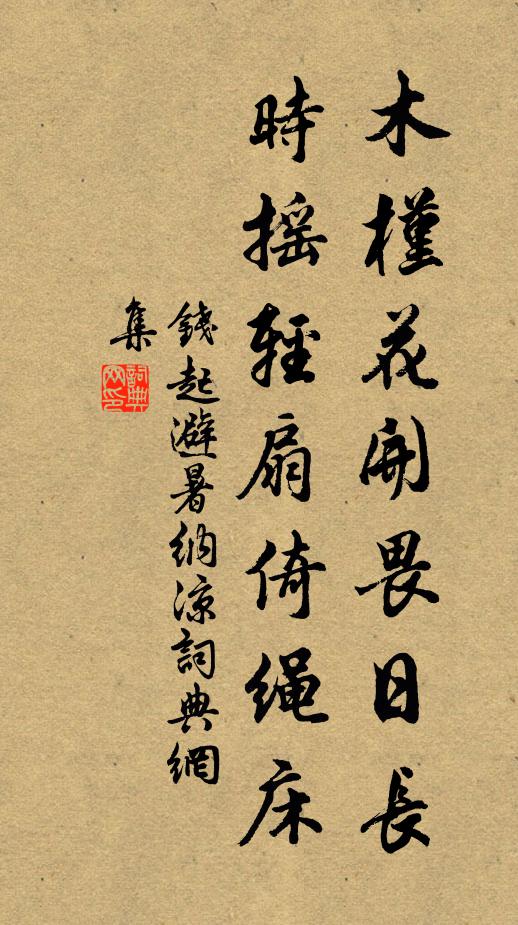 木槿花開畏日長
時摇輕扇倚绳床
錢起避暑納涼詞典網
集
詞典
网印